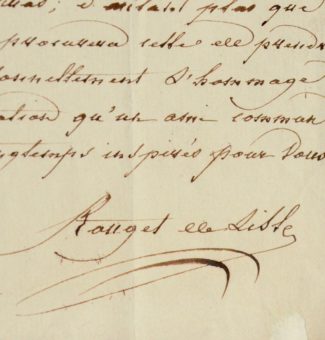 d'autant plus que
procurera celle de prendre
onnellement l'hommage
ation qu'un ami commun
ngtemps inspirés pour vous
Rouget de Lisle